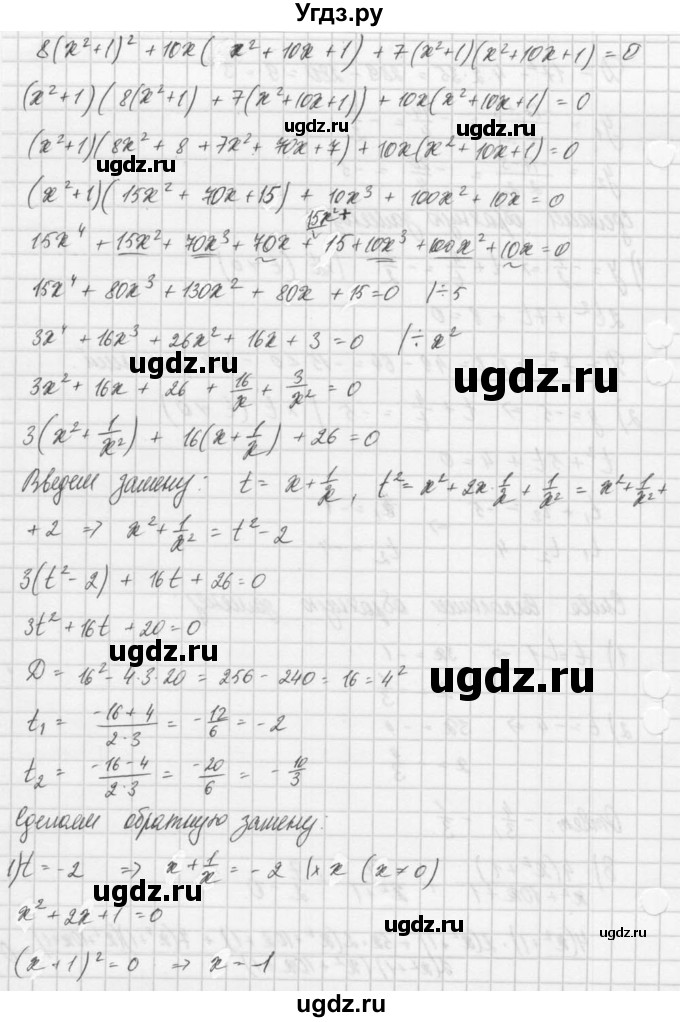 Угдз.ру
8(x²+1)² + 10x( x²+10x+1) + 7(x²+1)(x²+10x+1) = 0
(x²+1)(8(x²+1) + 7(x²+10x+1)) + 10x(x²+10x+1) = 0
ugdz.ru
(x²+1)(8x² + 8 + 7x² + 70x + 7) + 10x(x²+10x+1) = 0
ugdz.ru ugdz.ru
(x²+1)(15x² + 70x + 15) + 10x³ + 100x² + 10x = 0
15x²+
15x⁴ + 15x² + 70x³ + 70x + 15 + 10x³ + 100x² + 10x = 0
15x⁴ + 80x³ + 130x² + 80x + 15 = 0 |÷5
ugdz.ru
3x⁴ + 16x³ + 26x² + 16x + 3 = 0 |÷x²
ugdz.ru
3x² + 16x + 26 + 16/x + 3/x² = 0
3(x² + 1/x²) + 16(x + 1/x) + 26 = 0
Введем замену: t = x + 1/x, t² = x² + 2x·1/x + 1/x² = x² + 1/x² +
ugdz.ru
+ 2 ⇒ x² + 1/x² = t² − 2
3(t² − 2) + 16t + 26 = 0
3t² + 16t + 20 = 0
ugdz.ru
D = 16² − 4·3·20 = 256 − 240 = 16 = 4²
ugdz.ru
t₁ = (−16+4)/(2·3) = −12/6 = −2
t₂ = (−16−4)/(2·3) = −20/6 = −10/3
ugdz.ru
Сделаем обратную замену:
1) t = −2 ⇒ x + 1/x = −2 |×x (x≠0)
ugdz.ru
x² + 2x + 1 = 0
(x+1)² = 0 ⇒ x = −1
ugdz.ru
ugdz.ru